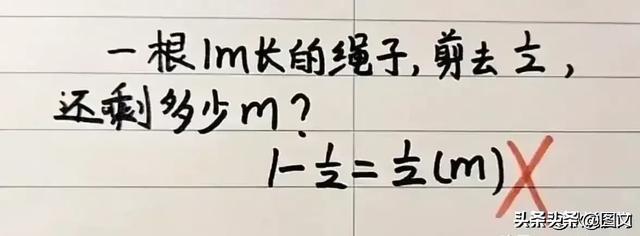 一根1m长的绳子,剪去1/2,
还剩多少m?
1-1/2=1/2(m)
头条 @图文